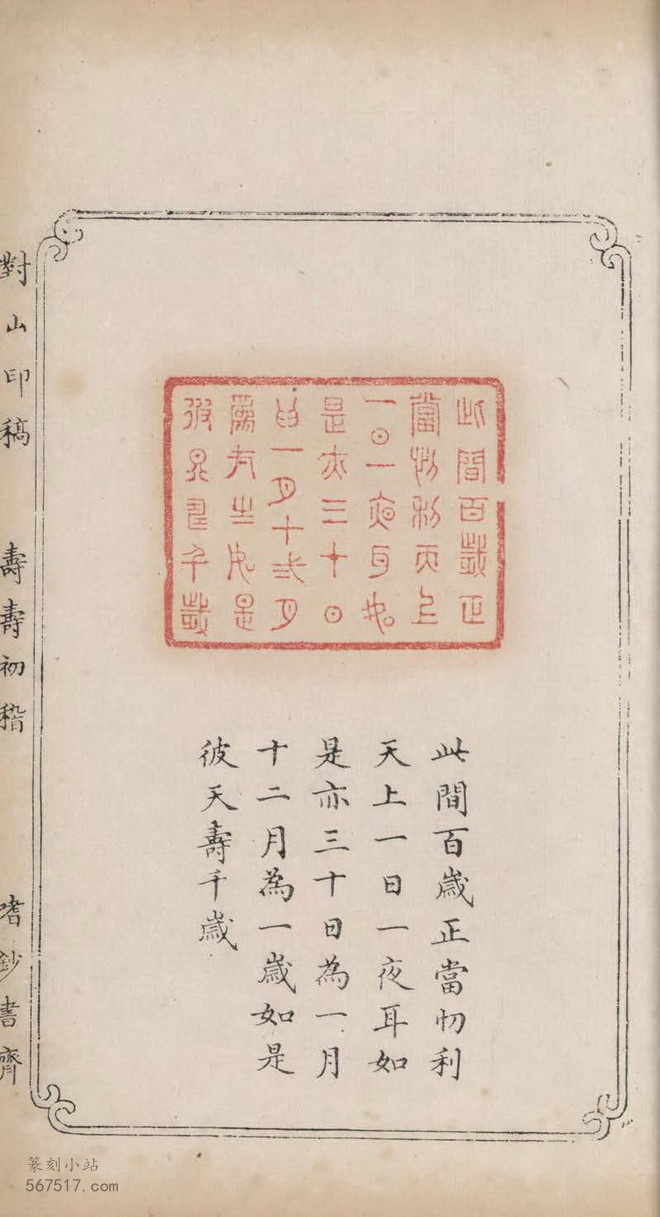 此間百歲正
當忉利天上
一日一夜耳如
是亦三十日
為一月十二月
為一歲如是
彼天壽千歲
此間百歲正當忉利
天上一日一夜耳如
是亦三十日為一月
十二月為一歲如是
彼天壽千歲
對山印稿 壽壽初稽 嗜鈔書齊
篆刻小站
567517.com